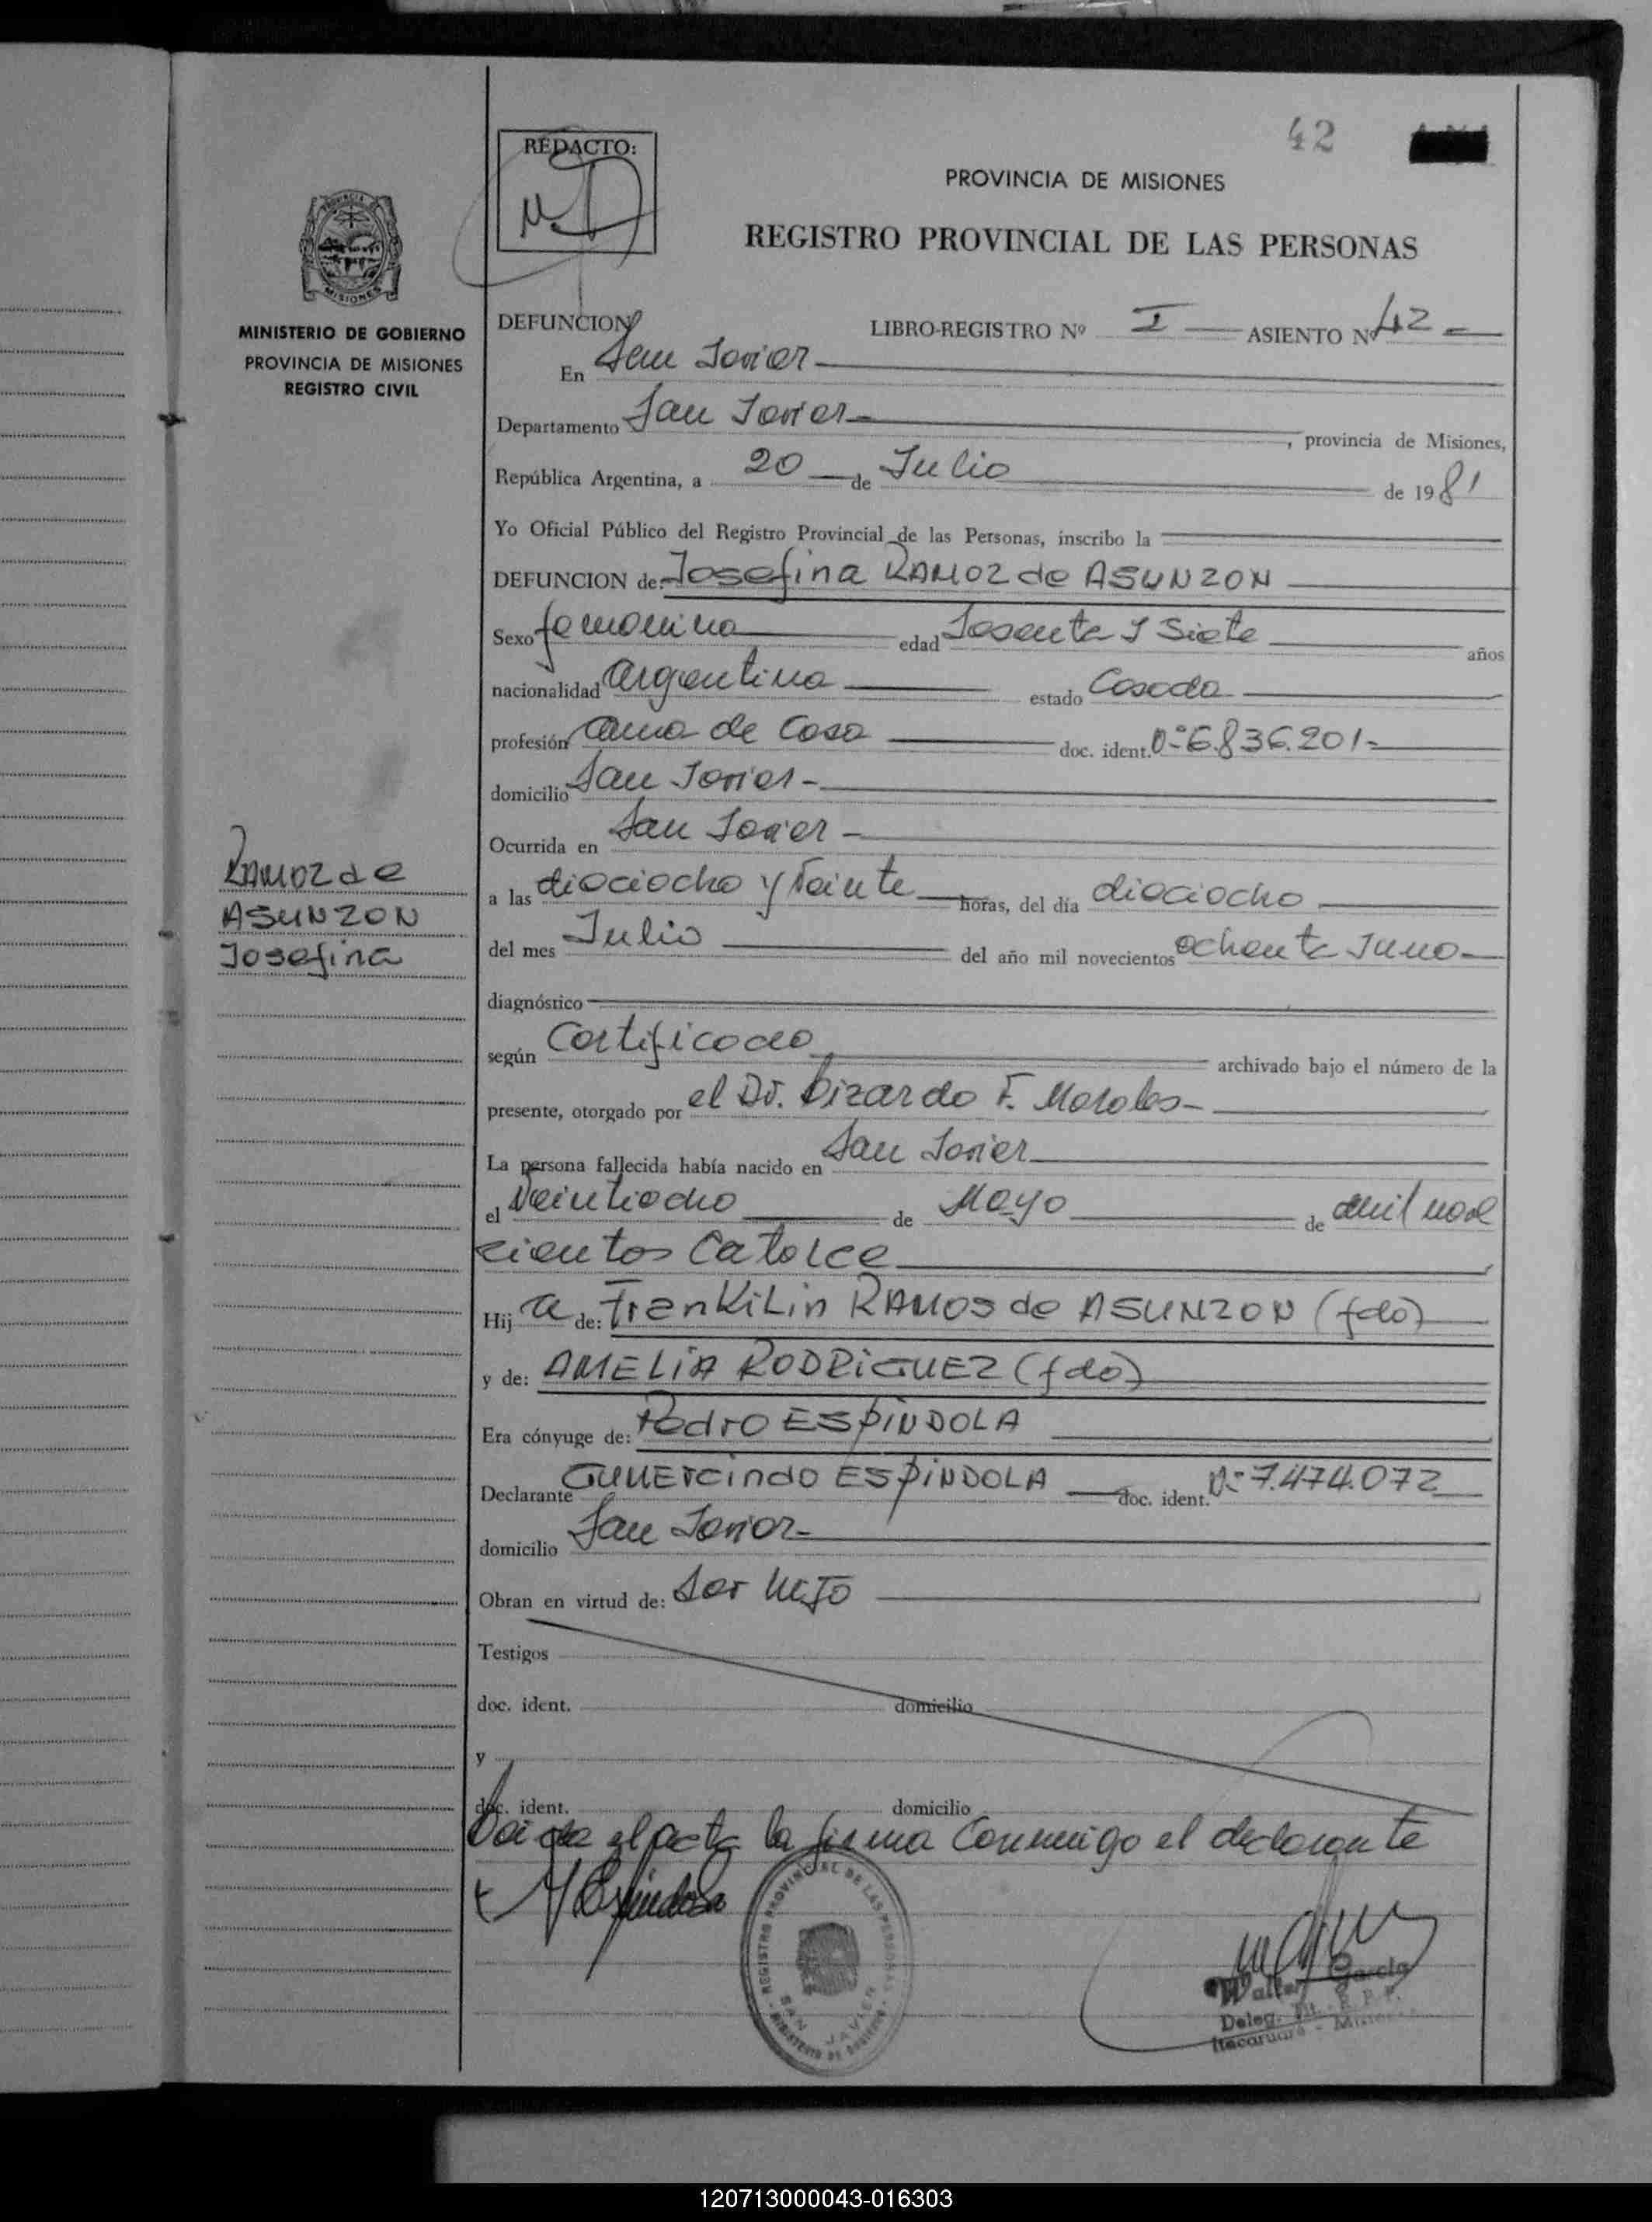 42
REDACTO:
PROVINCIA DE MISIONES
REGISTRO PROVINCIAL DE LAS PERSONAS
MISIONES
MINISTERIO DE GOBIERNO
PROVINCIA DE MISIONES
REGISTRO CIVIL
DEFUNCION LIBRO-REGISTRO Nº I ASIENTO Nº 42
En San Javier
Departamento San Javier, provincia de Misiones,
República Argentina, a 20 de Julio de 1981
Yo Oficial Público del Registro Provincial de las Personas, inscribo la
DEFUNCION de: Josefina RAMOZ de ASUNZON
Sexo femenina edad Sesenta y Siete años
nacionalidad argentina estado Casada
profesión ama de Casa doc. ident. 6.836.201.-
domicilio San Javier-
Ocurrida en San Javier-
RAMOZ de
ASUNZON
Josefina
a las dieciocho y veinte horas, del día dieciocho
del mes Julio del año mil novecientos ochenta y uno-
diagnóstico
según Certificado archivado bajo el número de la
presente, otorgado por el Dr. Lizardo F. Morales-
La persona fallecida había nacido en San Javier
el veintiocho de Mayo de mil nove
cientos Catorce
Hija de: FrenKiLin RAMOS de ASUNZON (fdo)
y de: AMELIA RODRIGUEZ (fdo)
Era cónyuge de: Pedro ESPINDOLA
Declarante GUMERcindo ESPINDOLA doc. ident. 7.474.072
domicilio San Javier-
Obran en virtud de: Ser HIJO
Testigos
doc. ident. domicilio
y
doc. ident. domicilio
Leida el acta la firma Conmigo el declarante
Espindola
REGISTRO PROVINCIAL DE LAS PERSONAS
SAN JAVIER
MINISTERIO DE GOBIERNO
Walter Garcia
Deleg. Tit.
Itacaruaré -
120713000043-016303